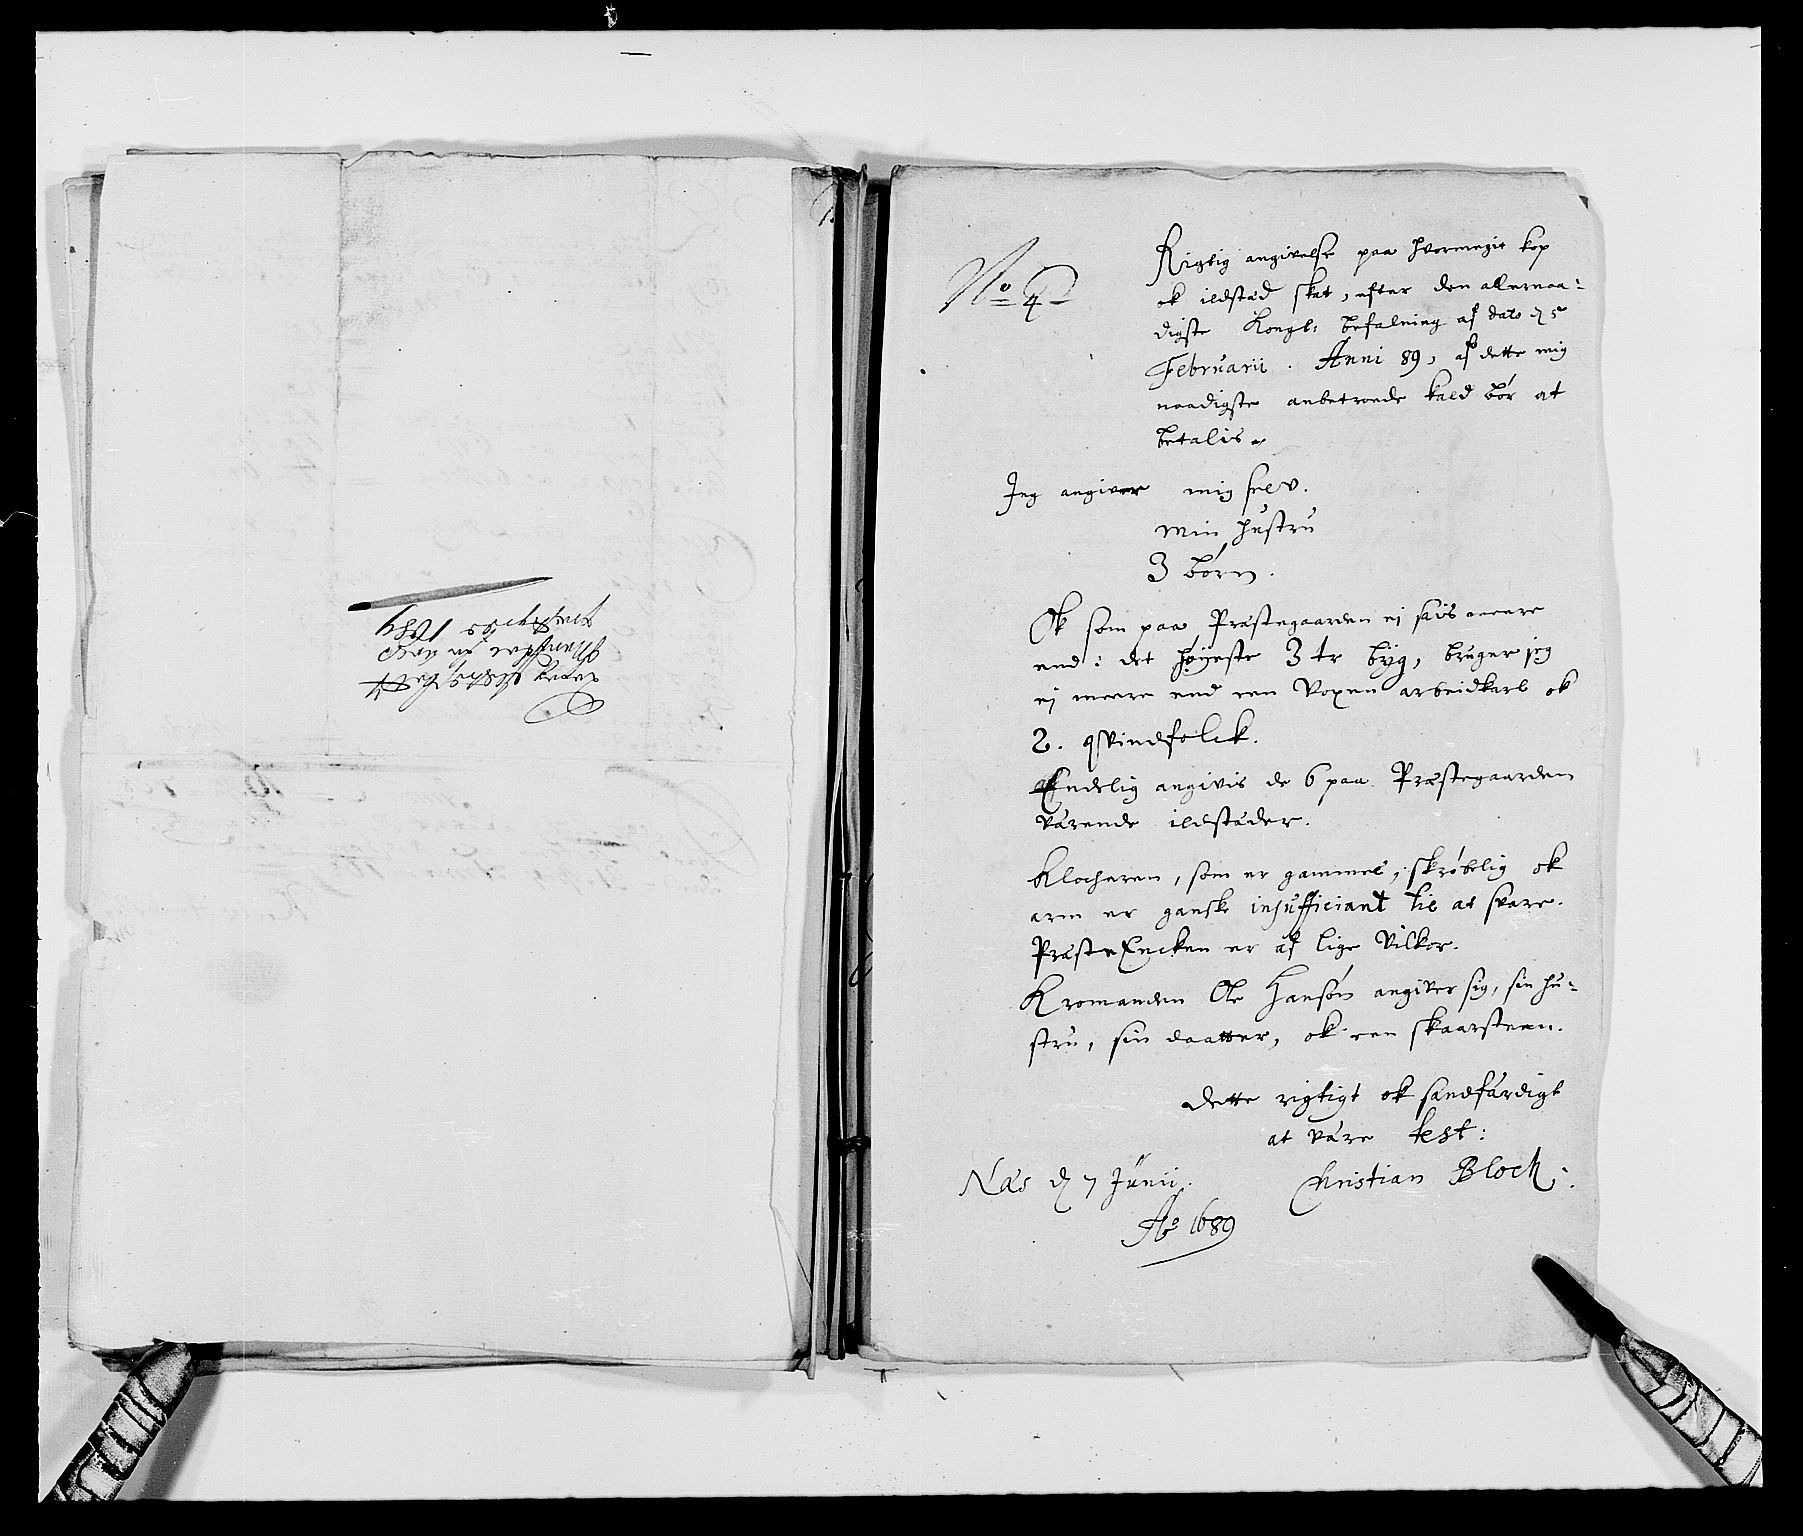 No 4
Rigtig angivelse paa hvormegit kop
ok ildstæd skat, efter den allernaa:
digste Kongl: befalning af dato d 5
Februarii. Anni 89, af dette mig
naadigste anbetroede kald bør at
betalis
Jeg angiver mig selv.
min hustru
3 børn.
Ok som paa Præstegaarden ej saas meere
end: det høyeste 3 tr byg, bruger jeg
ej meere end een Voxen arbeidkarl ok
2. qvindfolck.
Endelig angivis de 6 paa Præstegaarden
værende ildstæder.
Klocheren, som er gammel, skrøbelig ok
arm er ganske insufficiant til at svare.
Præste Encken er af lige Vilkor.
Kromanden Ole Hansøn angiver sig, sin hu-
stru, sin daatter, ok een skaarsteen.
Dette rigtigt ok sandfærdigt
at være test:
Næs d 7 Junii. Christian Block:
Ao 1689